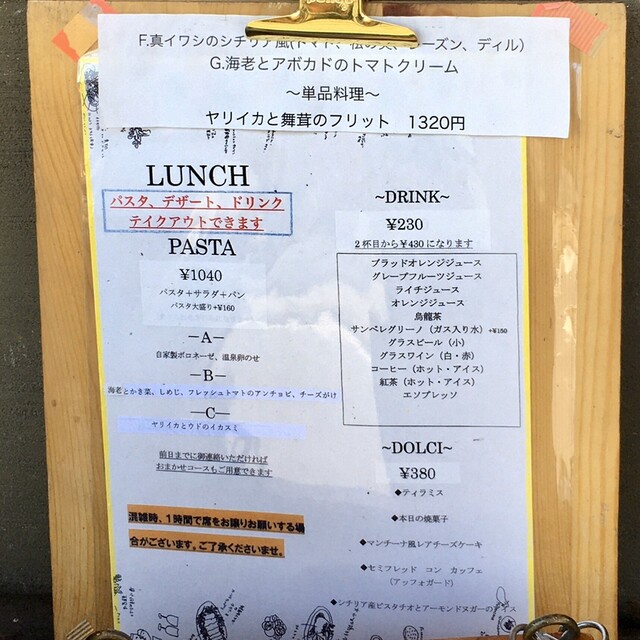 F.真イワシのシチリア風(トマト、松の実、レーズン、ディル)
G.海老とアボカドのトマトクリーム
～単品料理～
ヤリイカと舞茸のフリット 1320円
LUNCH
パスタ、デザート、ドリンク
テイクアウトできます
PASTA
¥1040
パスタ+サラダ+パン
パスタ大盛り+¥160
—A—
自家製ボロネーゼ、温泉卵のせ
—B—
海老とかき菜、しめじ、フレッシュトマトのアンチョビ、チーズがけ
—C—
ヤリイカとウドのイカスミ
前日までに御連絡いただければ
おまかせコースもご用意できます
混雑時、1時間で席をお譲りお願いする場
合がございます。ご了承くださいませ。
~DRINK~
¥230
2杯目から¥430になります
ブラッドオレンジジュース
グレープフルーツジュース
ライチジュース
オレンジジュース
烏龍茶
サンペレグリーノ（ガス入り水）+¥150
グラスビール（小）
グラスワイン（白・赤）
コーヒー（ホット・アイス）
紅茶（ホット・アイス）
エソプレッソ
~DOLCI~
¥380
◆ティラミス
◆本日の焼菓子
◆マンチーナ風レアチーズケーキ
◆セミフレッド コン カッフェ
（アッフォガード）
◆シチリア産ピスタチオとアーモンドヌガーのアイス